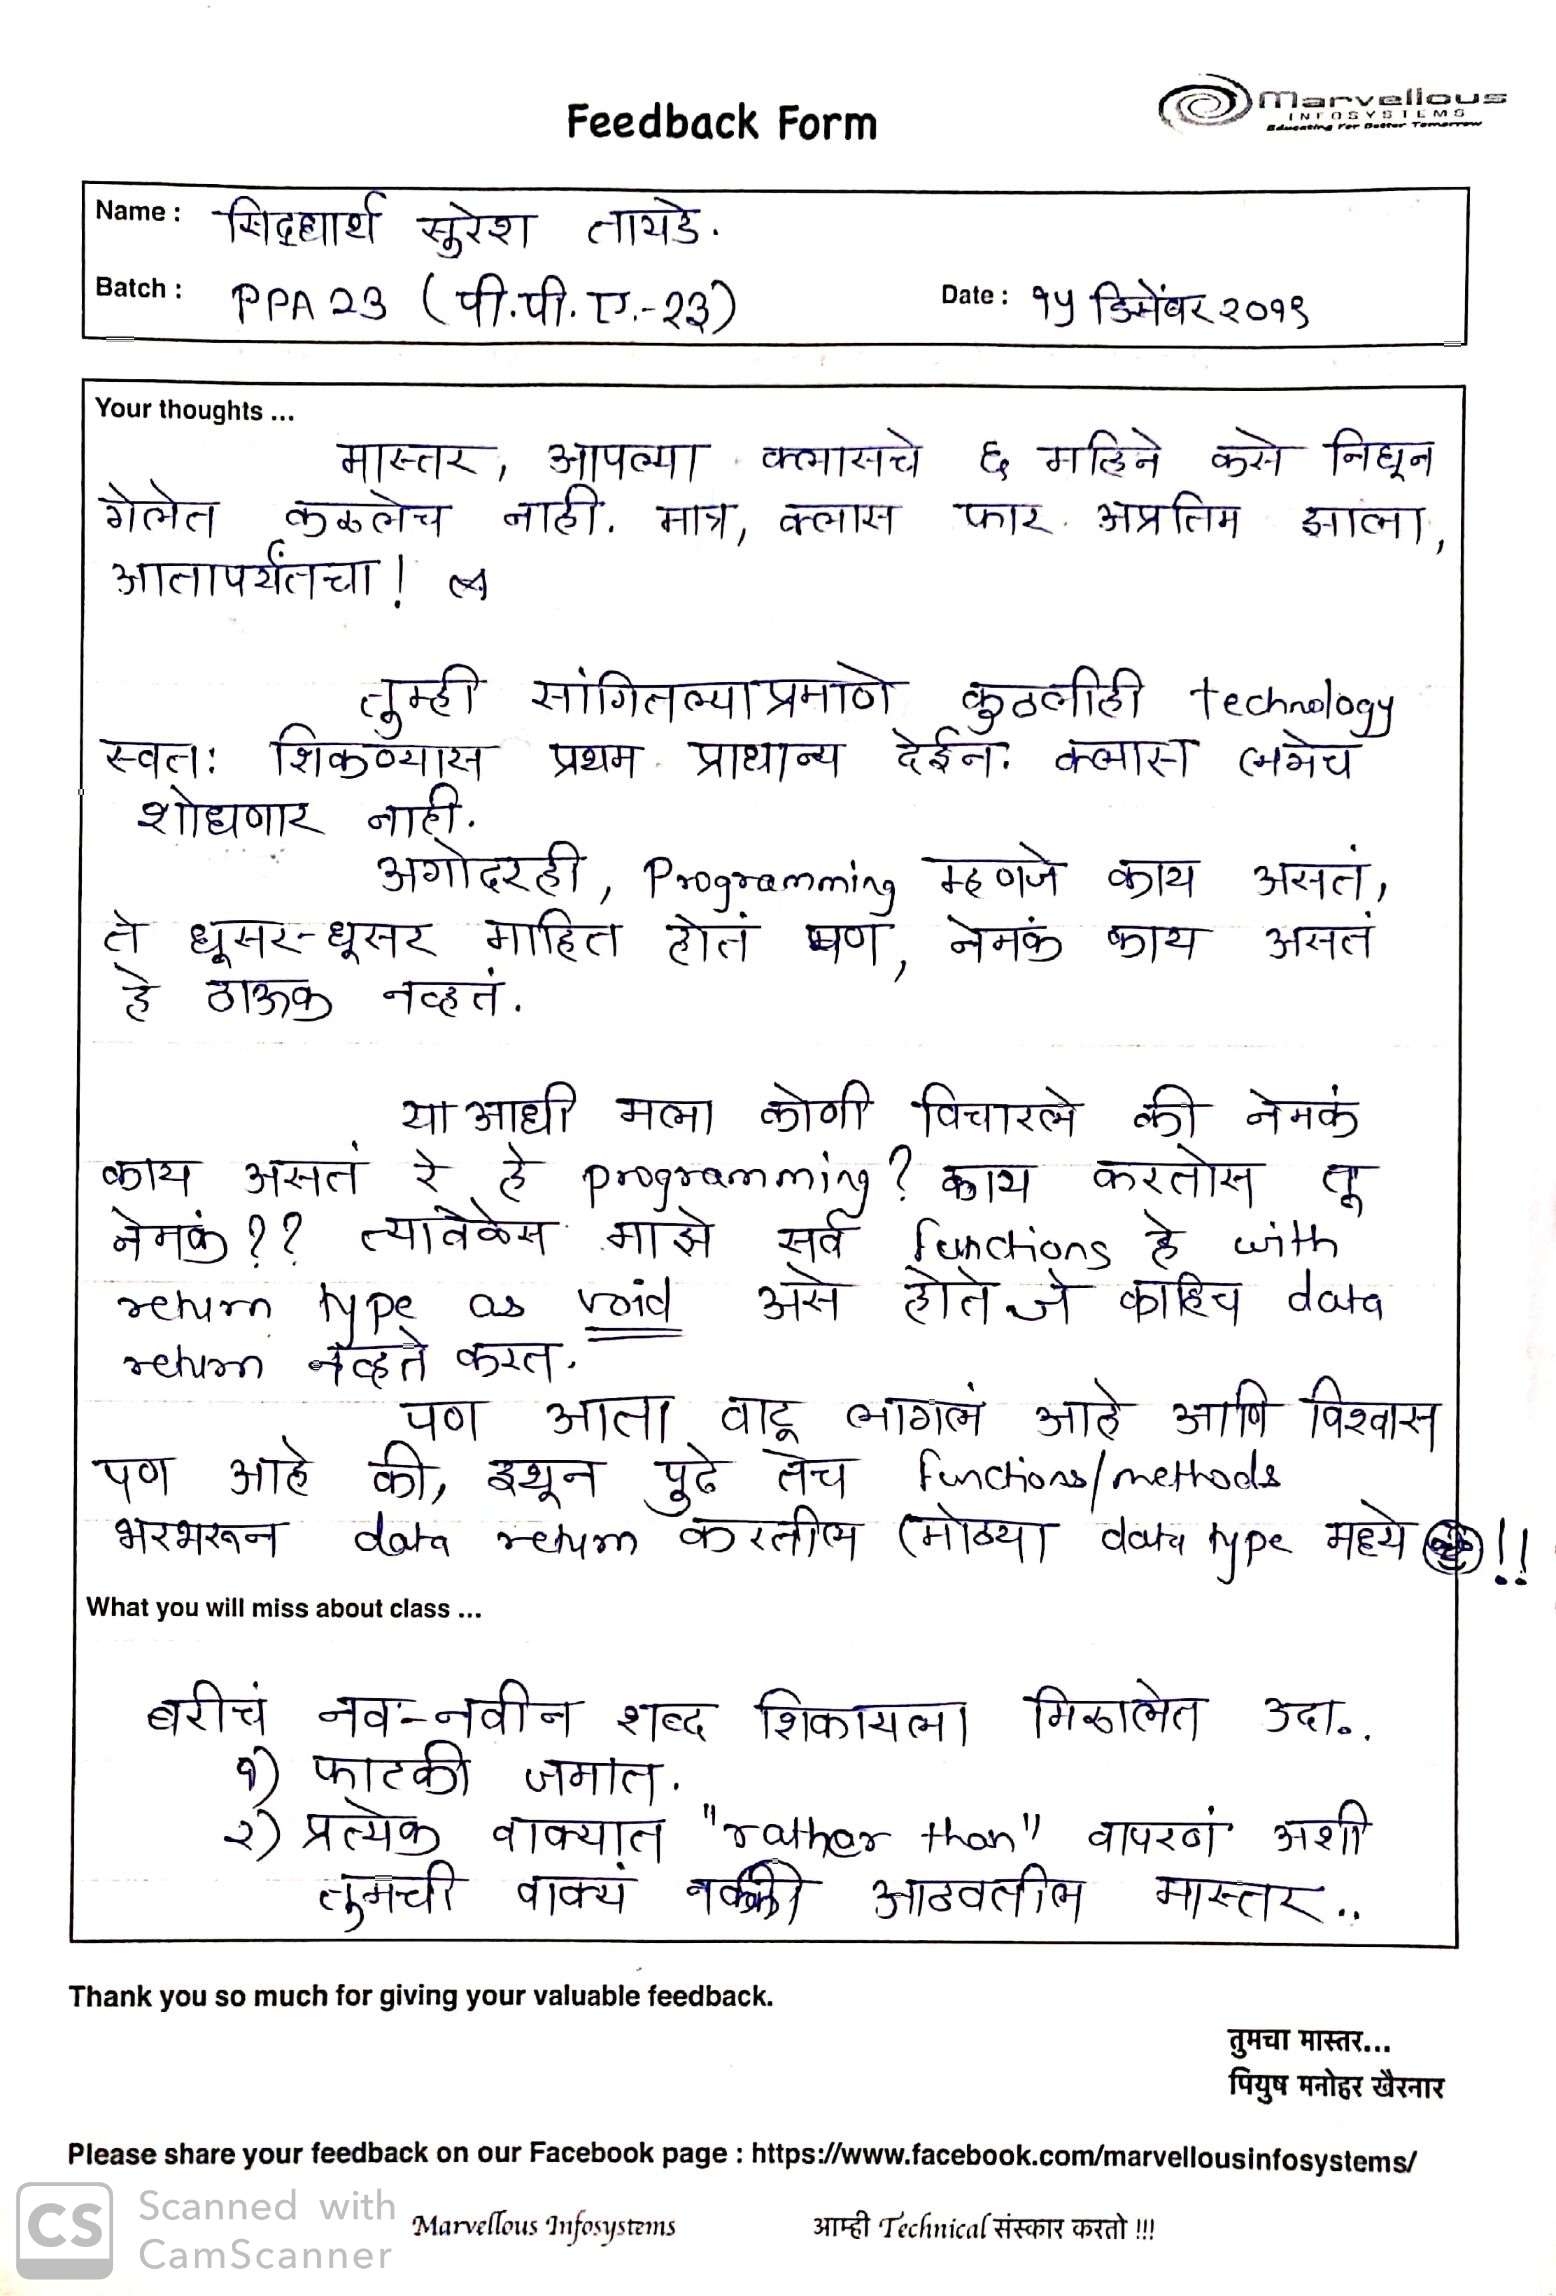 Feedback Form
Marvellous
INFOSYSTEMS
Educating For Better Tomorrow
Name : सिद्धार्थ सुरेश तायडे.
Batch : PPA 23 (पी.पी.ए.-२३) Date : १५ डिसेंबर २०१९
Your thoughts ...
मास्तर, आपल्या क्लासचे ६ महिने कसे निघून
गेलेत कळलेच नाही. मात्र, क्लास फार अप्रतिम झाला,
आतापर्यंतचा!
तुम्ही सांगितल्याप्रमाणे कुठलीही technology
स्वतः शिकण्यास प्रथम प्राधान्य देईन. क्लास लगेच
शोधणार नाही.
अगोदरही, Programming म्हणजे काय असतं,
ते धूसर-धूसर माहित होतं पण, नेमकं काय असतं
हे ठाऊक नव्हतं.
या आधी मला कोणी विचारले की नेमकं
काय असतं रे हे programming? काय करतोस तू
नेमकं?? त्यावेळेस माझे सर्व functions हे with
return type as void असे होते जे काहिच data
return नव्हते करत.
पण आता वाटू लागलं आहे आणि विश्वास
पण आहे की, इथून पुढे तेच functions/methods
भरभरून data return करतील (मोठ्या data type मध्ये !!
What you will miss about class ...
बरीचं नव-नवीन शब्द शिकायला मिळालेत उदा..
१) फाटकी जमात.
२) प्रत्येक वाक्यात "rather than" वापरणं अशी
तुमची वाक्यं नक्की आठवतील मास्तर..
Thank you so much for giving your valuable feedback.
तुमचा मास्तर...
पियुष मनोहर खैरनार
Please share your feedback on our Facebook page : https://www.facebook.com/marvellousinfosystems/
CS Scanned with
CamScanner
Marvellous Infosystems आम्ही Technical संस्कार करतो !!!